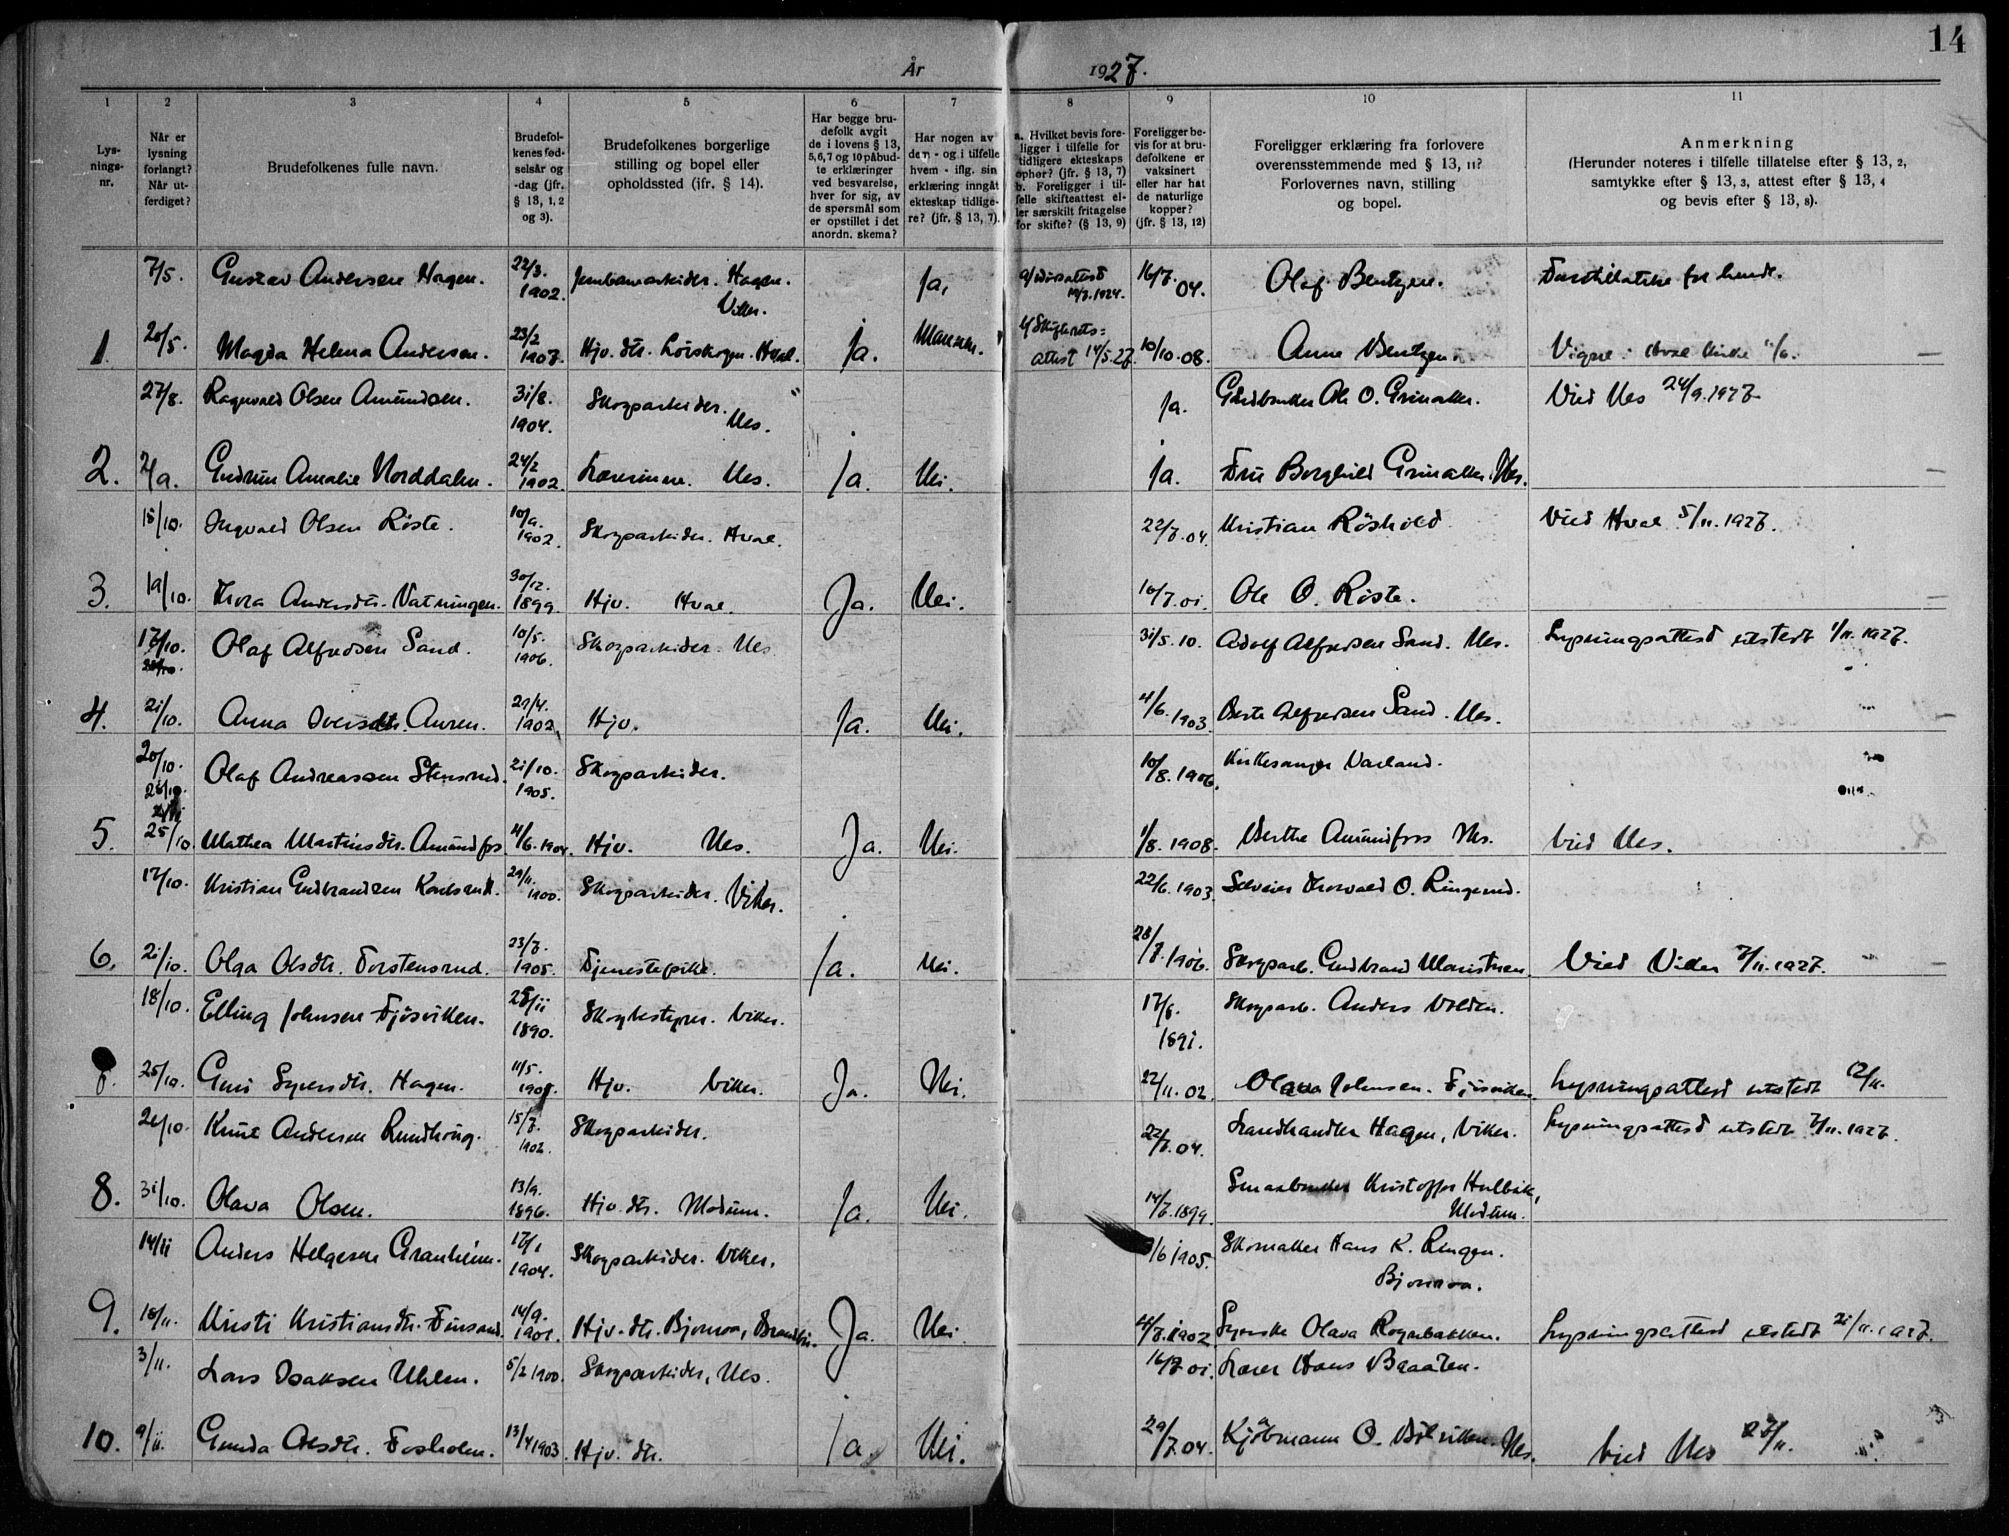 14
År 1927.
1 2 3 4 5 6 7 8 9 10 11
Lysningsnr.
Når er lysning forlangt? Når utferdiget?
Brudefolkenes fulle navn.
Brudefolkenes fødselsår og -dag (jfr. § 13, 1, 2 og 3).
Brudefolkenes borgerlige stilling og bopel eller opholdssted (jfr. § 14).
Har begge brudefolk avgit de i lovens § 13, 5, 6, 7 og 10 påbudte erklæringer ved besvarelse, hver for sig, av de spørsmål som er opstillet i det anordn. skema?
Har nogen av dem - og i tilfelle hvem - iflg. sin erklæring inngått ekteskap tidligere? (jfr. § 13, 7).
a. Hvilket bevis foreligger i tilfelle for tidligere ekteskaps ophør? (jfr. § 13, 7) b. Foreligger i tilfelle skifteattest eller særskilt fritagelse for skifte? (§ 13, 9)
Foreligger bevis for at brudefolkene er vaksinert eller har hat de naturlige kopper? (jfr. § 13, 12)
Foreligger erklæring fra forlovere overensstemmende med § 13, 11? Forlovernes navn, stilling og bopel.
Anmerkning (Herunder noteres i tilfelle tillatelse efter § 13, 2, samtykke efter § 13, 3, attest efter § 13, 4 og bevis efter § 13, 8).
7/5. Gustav Andersen Hagen. 22/3. 1902. Jernbanearbeider. Hagen. Viker. Ja, 16/7. 04. Olaf Bentzen.
1. 20/5. Magda Helena Andersen. 23/2 1907. Hjv. dtr. Hval. Ja. Mannen. b/ Skifterets= attest 14/5. 27. 10/10. 08. Anne Bentzen. Vigne i Hval kirke 11/6.
27/8. Ragnvald Olsen Amundsen. 31/8. 1904. Skogarbeider. Nes. Ja. Gårdbruker Ole O. Grimaker. Viet Nes 24/9. 1927
2. 2/9. Gudrun Amalie Norddalen. 24/2 1902. Lærerinne. Nes. Ja. Nei. Ja. Fru Borghild Grimaker. Nes.
15/10. Ingvald Olsen Røste. 10/9. 1902. Skogarbeider. Hval. 22/7. 04. Kristian Røshold Viet Hval 5/11. 1927.
3. 19/10. Thora Andersdtr. Vatningen. 30/12. 1899. Hjv. Hval. Ja. Nei. 10/7. 01. Ole O. Røste.
17/10. Olaf Alfredsen Sand. 10/5. 1906. Skogarbeider. Nes 31/5. 10. Adolf Alfredsen Sand. Nes. Lysningsattest utstedt 1/11. 1927.
4. 21/10. Anna Iversdtr. Auren. 29/4. 1902. Hjv. Ja. Nei. 4/6. 1903. Berte Alfredsen Sand. Nes.
20/10. Olaf Andreassen Stensrud. 21/10. 1905. Skogarbeider. 10/8. 1906. Kirkesanger Varland.
5. 25/10. Mathea Martinsdtr. Amundfos 4/6. 1904. Hjv. Nes. Ja. Nei. 1/8. 1908. Berthe Amundfoss Nes. Viet Nes.
17/10. Kristian Gudbrandsen Karlsrud. 29/11. 1900. Skogarbeider. Viker. 22/6. 1903. Selveier Thorvald O. Ringerud.
6. 21/10. Olga Olsdtr. Torstensrud. 23/7. 1905. Tjenestepike. Ja. Nei. 28/7. 1906. Skogarb. Gudbrand Maristuen. Viet Viker 7/11. 1927.
18/10. Elling Johnsen Fjøsviken. 25/11 1890. Skogbestyrer. Viker. 17/6. 1891. Skogarb. Anders Volden.
7. 25/10. Guri Syversdtr. Hagen. 11/5. Hjv. Viker. Ja. Nei. 22/11. 02. Olava Johnsen. Fjøsviken. Lysningsattest utstedt 12/11.
21/10. Knut Andersen Rundhaug. 15/7. 1902. Skogarbeider. 22/7. 04. Landhandler Hagen, Viker. Lysningsattest utstedt 7/11. 1927.
8. 31/10. Olava Olsen. 13/9. 1896. Hjv. dtr. Modum. Ja. Nei. 14/7. 1899. Smaabruker Kristoffer Hulbak, Modum.
14/11 Anders Helgesen Granheim. 17/1 1904. Skogarbeider. Viker. /6 1905. Skomaker Hans K. Ringen. Bjoneroa.
9. 18/11. Kristi Kristiansdtr. Finsand. 14/9. 1901. Hjv. dtr. Bjoneroa, Ja. Nei. 4/7. 1902 Syerske Olava Rognebakken. Lysningsattest utstedt 21/11. 1927.
3/11. Lars Isaksen Uhlen. 5/2 1900. Skogarbeider, Nes. 16/7 01. Lærer Hans Braaten.
10. 9/11. Gunda Olsdtr. Fosholm. 13/4 1903. Hjv. dtr. Ja. Nei. 29/7. 04. Kjøbmann O. Bølviken. Nes. Viet Nes 27/11.